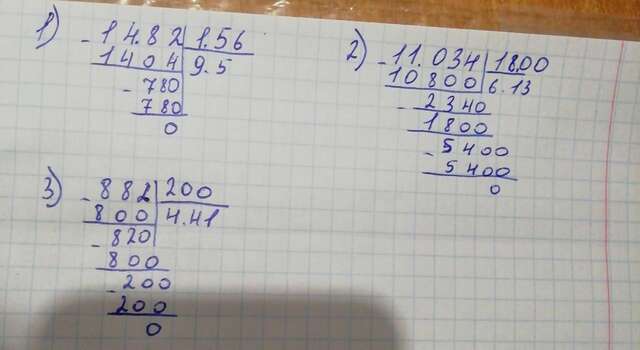 1) - 14.82 | 1.56
1404 | 9.5
- 780
780
0
2) - 11.034 | 18.00
10800 | 6.13
- 2340
1800
- 5400
5400
0
3) - 882 | 200
800 | 4.41
- 820
800
- 200
200
0